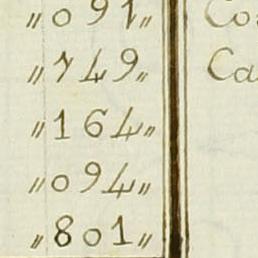 „091„ Co
„749„ Ca
„164„
„094„
„801„